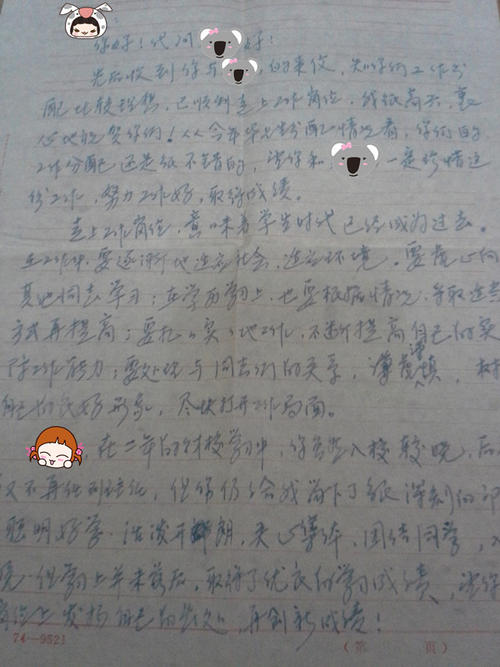 :
你好！代问 好！
先后收到你与 的来信，知你们工作分
配比较理想，已顺利走上工作岗位，我很高兴，衷
心地祝贺你们！从今年毕业生分配情况看，你们的
工作分配还是很不错的，望你和 一定珍惜这
份工作，努力工作好，取得成绩。
走上工作岗位，意味着学生时代已经成为过去。
在工作中，要逐渐地适应社会，适应环境。要虚心向
其他同志学习；在学历学习上，也要根据情况，争取适
方式再提高；要扎扎实实地工作，不断提高自己的实
际工作能力；要处理与同志们的关系，谦虚谨慎，树
自己的良好形象，尽快打开工作局面。
在二年的 校学习中，你虽然入校较晚，后
又不再任班 ，但你仍给我留下了很深刻的印
聪明好学、活泼开朗，关心集体，团结同学，入
晚，但学习上并未落后，取得了优良的学习成绩，望你
岗位上发扬自己的长处，再创新成绩！
74—9521
（第 页）